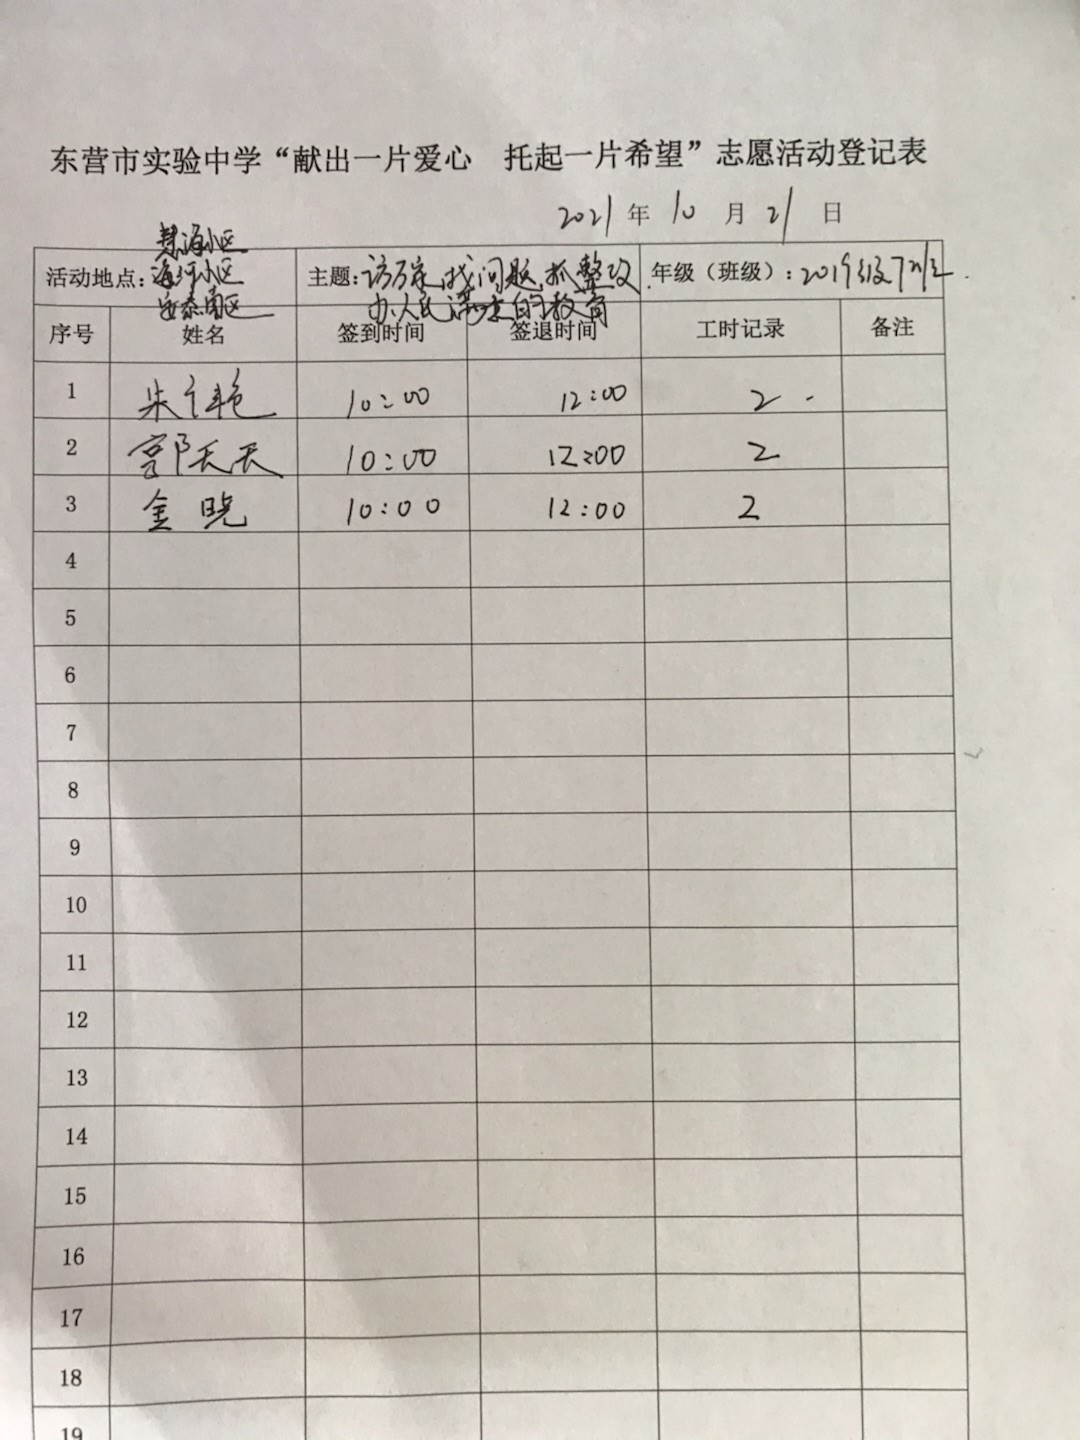 东营市实验中学“献出一片爱心 托起一片希望”志愿活动登记表
2021年 10 月 21 日
小区
活动地点：海河小区 主题：访万家,找问题,抓整改. 年级（班级）：2019级
安泰南区 办人民满意的教育
序号 姓名 签到时间 签退时间 工时记录 备注
1 朱 艳 10:00 12:00 2
2 郭天天 10:00 12:00 2
3 金晓 10:00 12:00 2
4
5
6
7
8
9
10
11
12
13
14
15
16
17
18
19